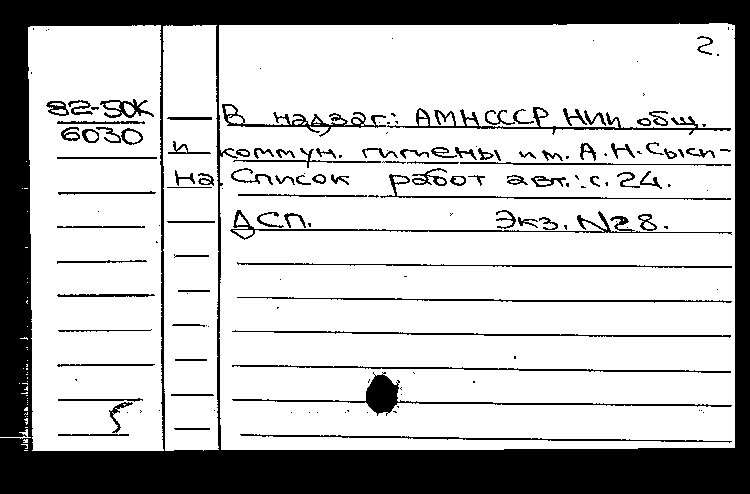 2.
82-50К
6030
В надзаг.: АМНСССР, НИИ общ.
и коммун. гигиены им. А.Н.Сыси-
на. Список работ авт.: с. 24.
ДСП. Экз. N28.
5